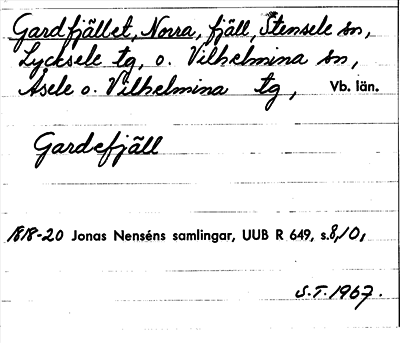 Gardfjället, Norra, fjäll, Stensele sn,
Lycksele tg, o. Vilhelmina sn,
Åsele o. Vilhelmina tg, Vb. län.
Gardefjäll
1818-20 Jonas Nenséns samlingar, UUB R 649, s.8,10,
S.T. 1967.